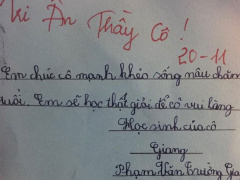 Tri Ân Thầy Cô !
20-11
Em chúc cô mạnh khỏe sống nâu chăm
tuổi. Em sẽ học thật giỏi để cô vui lòng
Học sinh của cô
Giang
Phạm Văn Trường Gia